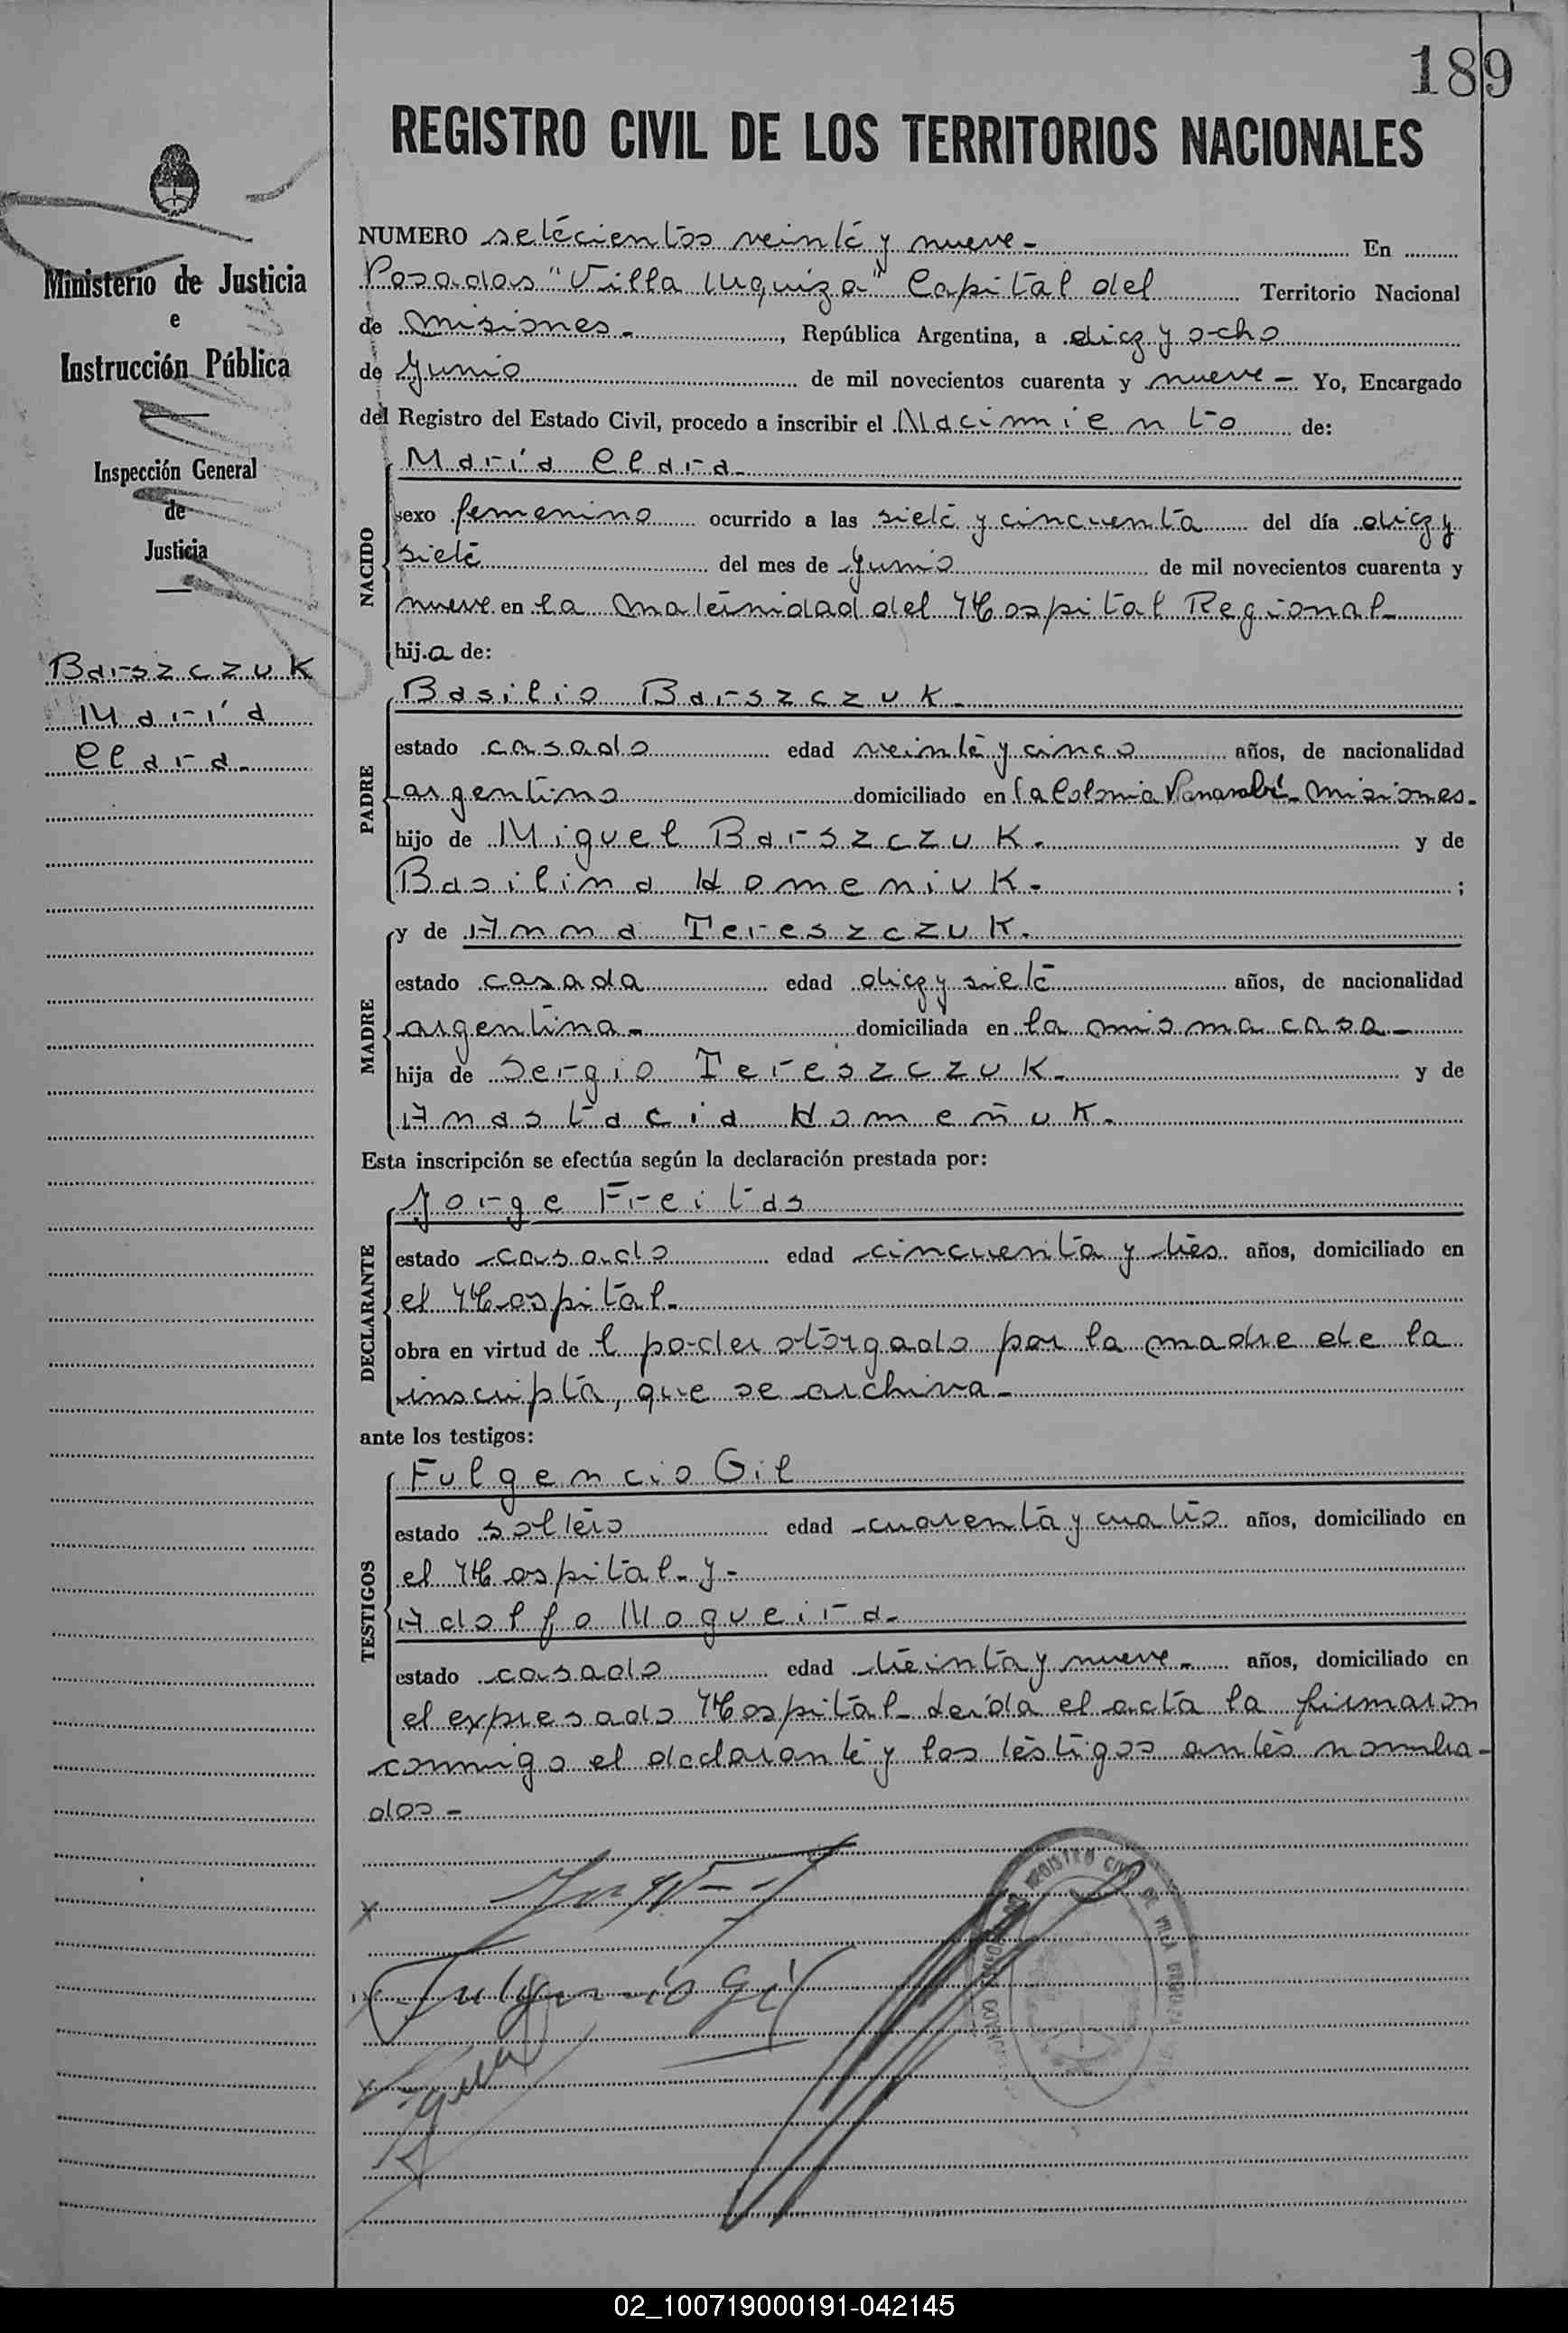 189
REGISTRO CIVIL DE LOS TERRITORIOS NACIONALES
Ministerio de Justicia
e
Instrucción Pública
Inspección General
de
Justicia
Barszczuk
María
Clara.
NUMERO setecientos veinte y nueve - En
Posadas "Villa Urquiza" Capital del Territorio Nacional
de Misiones - , República Argentina, a diez y ocho
de Junio de mil novecientos cuarenta y nueve - Yo, Encargado
del Registro del Estado Civil, procedo a inscribir el Nacimiento de:
María Clara.
NACIDO
sexo femenino ocurrido a las siete y cincuenta del día diez y
siete del mes de Junio de mil novecientos cuarenta y
nueve en la Maternidad del Hospital Regional -
hija de:
Basilio Barszczuk.
PADRE
estado casado edad veinte y cinco años, de nacionalidad
argentino domiciliado en la Colonia Panambí - Misiones -
hijo de Miguel Barszczuk. y de
Basilina Homeniuk. ;
MADRE
y de Anna Tereszczuk.
estado casada edad diez y siete años, de nacionalidad
argentina - domiciliada en la misma casa -
hija de Sergio Tereszczuk. y de
Anastacia Homeñuk.
Esta inscripción se efectúa según la declaración prestada por:
Jorge Freitas
DECLARANTE
estado casado edad cincuenta y tres años, domiciliado en
el Hospital -
obra en virtud de l poder otorgado por la madre de la
inscripta, que se archiva -
ante los testigos:
Fulgencio Gil
TESTIGOS
estado soltero edad cuarenta y cuatro años, domiciliado en
el Hospital - y -
Adolfo Nogueira.
estado casado edad treinta y nueve - años, domiciliado en
el expresado Hospital - Leída el acta la firmaron
conmigo el declarante y los testigos antes nombra-
dos -
Fulgencio Gil
REGISTRO CIVIL DE VILLA URQUIZA
02_100719000191-042145